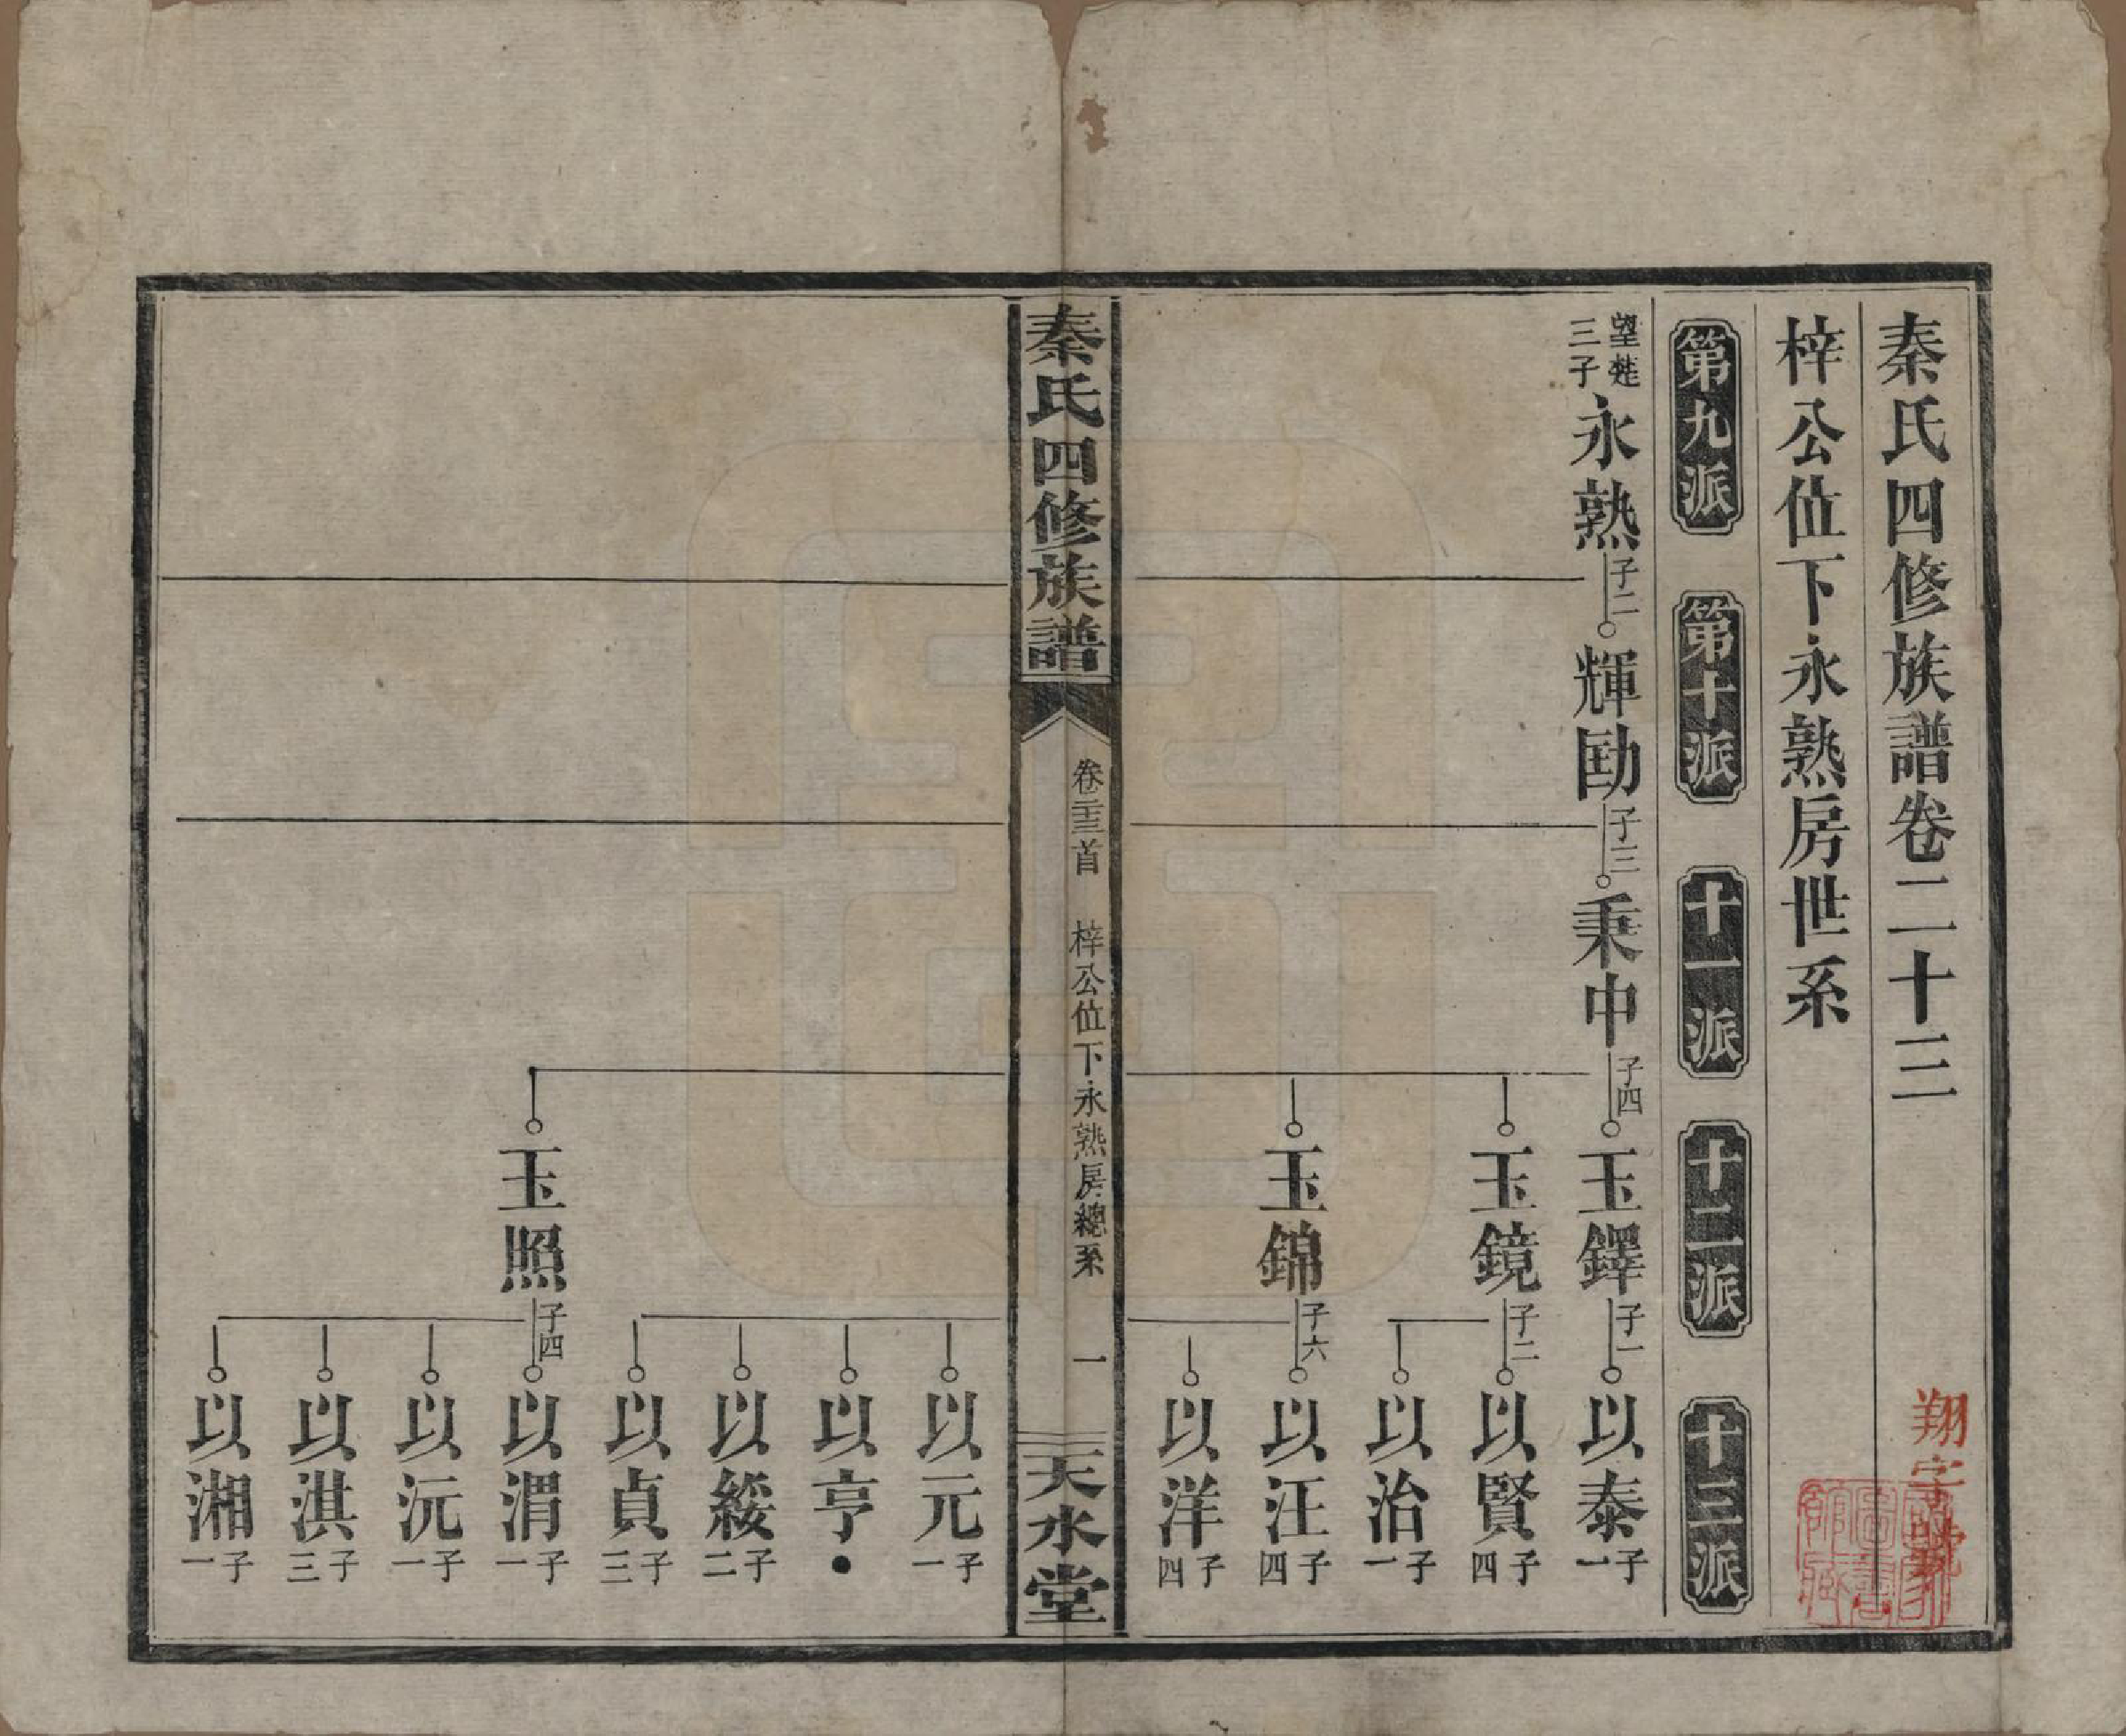 秦氏四修族譜卷二十三
翔字號
梓公位下永熟房世系
第九派
第十派
十一派
十二派
十三派
三子
永熟
子二
輝勛
子三
秉中
子四
玉鐸
子一
以泰
子一
玉鏡
子二
以賢
子四
以治
子一
玉錦
子六
以汪
子四
以洋
子四
秦氏四修族譜
卷二十三首
梓公位下永熟房總系
一
天水堂
以元
子一
以亨
以綏
子二
以貞
子三
玉照
子四
以渭
子一
以沅
子一
以淇
子三
以湘
子一